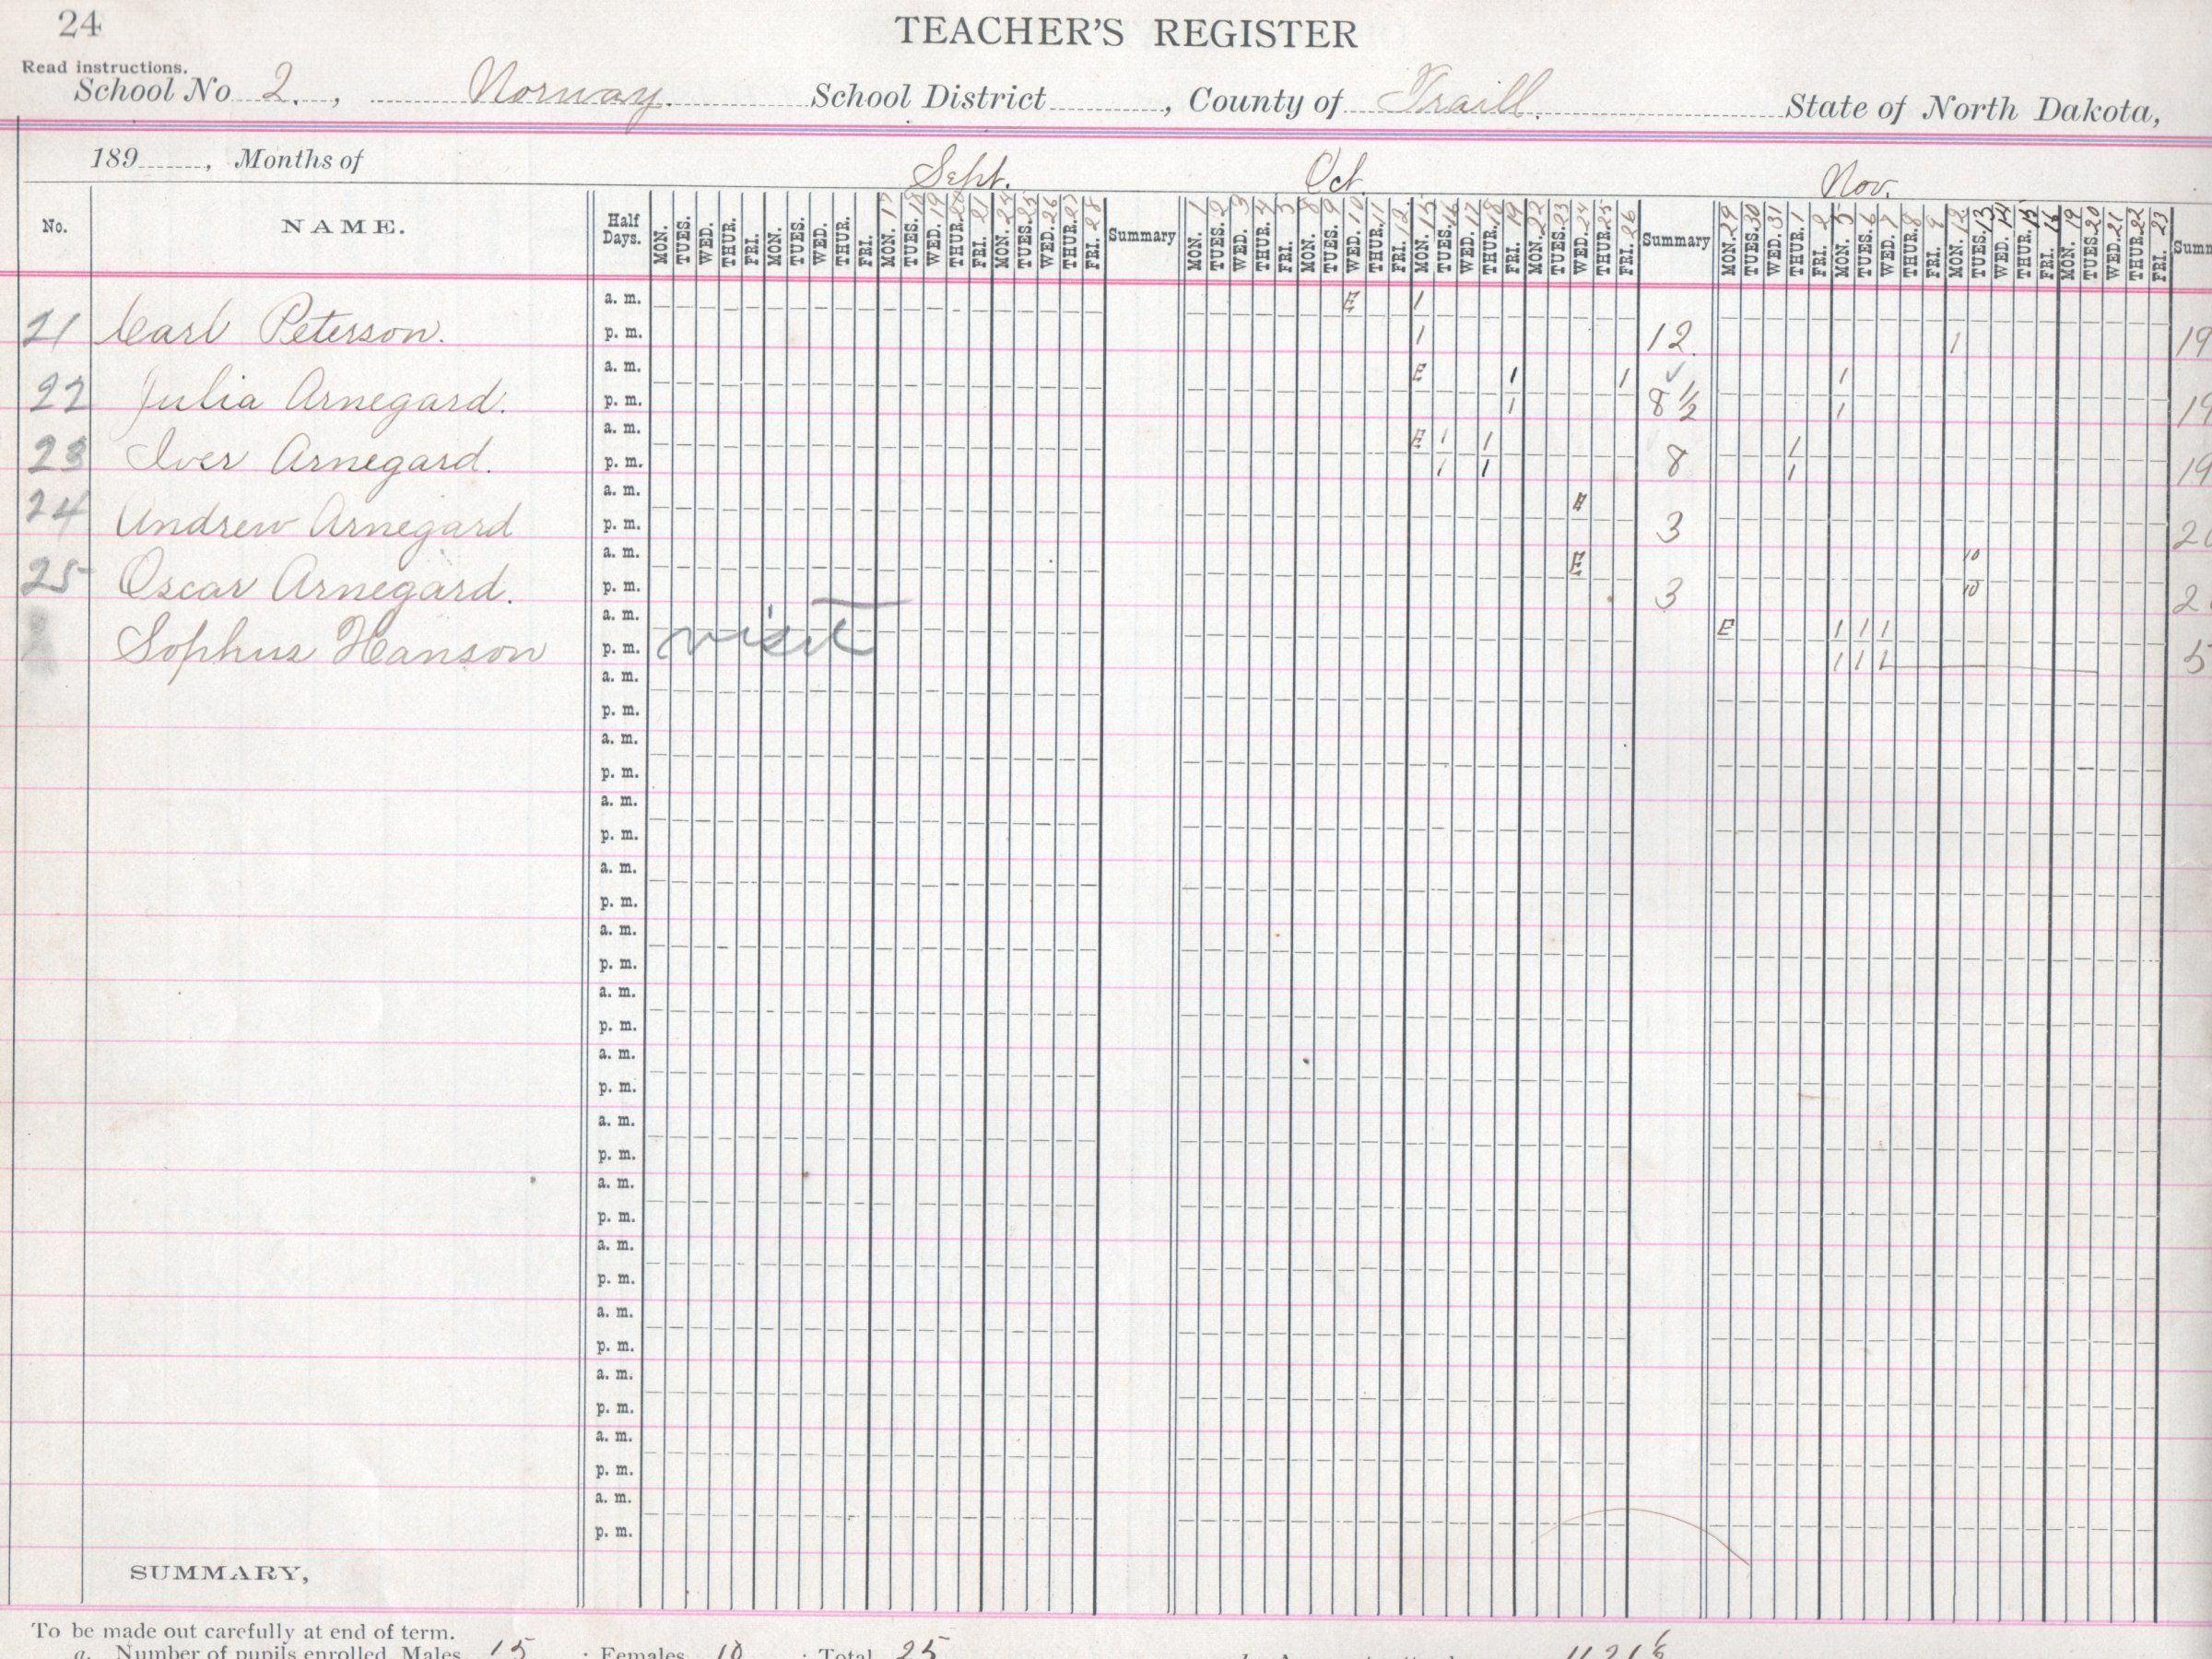 24
TEACHER'S REGISTER
Read instructions.
School No 2. , Norway. School District , County of Traill. State of North Dakota,
189 , Months of Sept. Oct. Nov.
No. NAME. Half Days. MON. TUES. WED. THUR. FRI. MON. TUES. WED. THUR. FRI. MON. 17 TUES. 18 WED. 19 THUR. 20 FRI. 21 MON. 24 TUES. 25 WED. 26 THUR. 27 FRI. 28 Summary MON. 1 TUES. 2 WED. 3 THUR. 4 FRI. 5 MON. 8 TUES. 9 WED. 10 THUR. 11 FRI. 12 MON. 15 TUES. 16 WED. 17 THUR. 18 FRI. 19 MON. 22 TUES. 23 WED. 24 THUR. 25 FRI. 26 Summary MON. 29 TUES. 30 WED. 31 THUR. 1 FRI. 2 MON. 5 TUES. 6 WED. 7 THUR. 8 FRI. 9 MON. 12 TUES. 13 WED. 14 THUR. 15 FRI. 16 MON. 19 TUES. 20 WED. 21 THUR. 22 FRI. 23 Summ
a. m. E 1
21 Carl Peterson. p. m. 1 12. 1 19
a. m. E 1 1 ✓ 1
22 Julia Arnegard. p. m. 1 8 1/2 1 19
a. m. E 1 1 1
23 Iver Arnegard. p. m. 1 1 8 1 19
a. m. E
24 Andrew Arnegard p. m. 3 20
a. m. E 10
25 Oscar Arnegard. p. m. 3 10 2
a. m. E 1 1 1
Sophus Hanson p. m. visit 1 1 1 5
a. m.
p. m.
a. m.
p. m.
a. m.
p. m.
a. m.
p. m.
a. m.
p. m.
a. m.
p. m.
a. m.
p. m.
a. m.
p. m.
a. m.
p. m.
a. m.
p. m.
a. m.
p. m.
a. m.
p. m.
a. m.
p. m.
a. m.
p. m.
SUMMARY,
To be made out carefully at end of term.
a. Number of pupils enrolled, Males 15 ; Females 10 ; Total 25